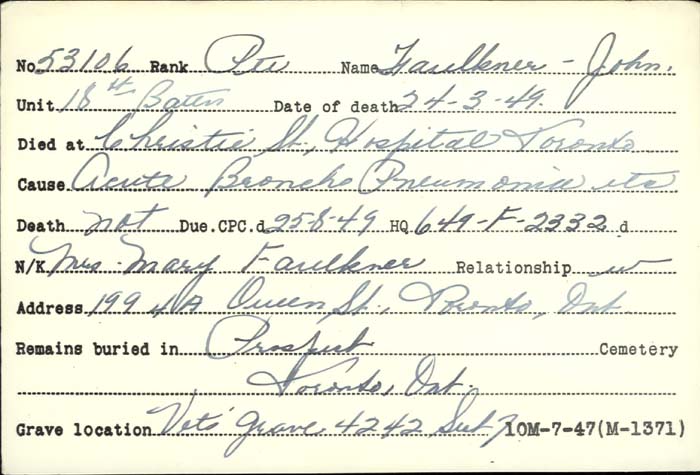 No. 53106 Rank Pte Name Faulkner - John.
Unit 18th Batt'n Date of death 24-3-49.
Died at Christie St., Hospital Toronto
Cause Acute Broncho Pneumonia etc
Death not Due. CPC. d 25-8-49 HQ 649-F-2332 d
N/K Mrs. Mary Faulkner Relationship w
Address 1994A Queen St., Toronto, Ont
Remains buried in Prospect Cemetery
Toronto, Ont.
Grave location Vets' Grave 4242 Sect 7 10M-7-47(M-1371)